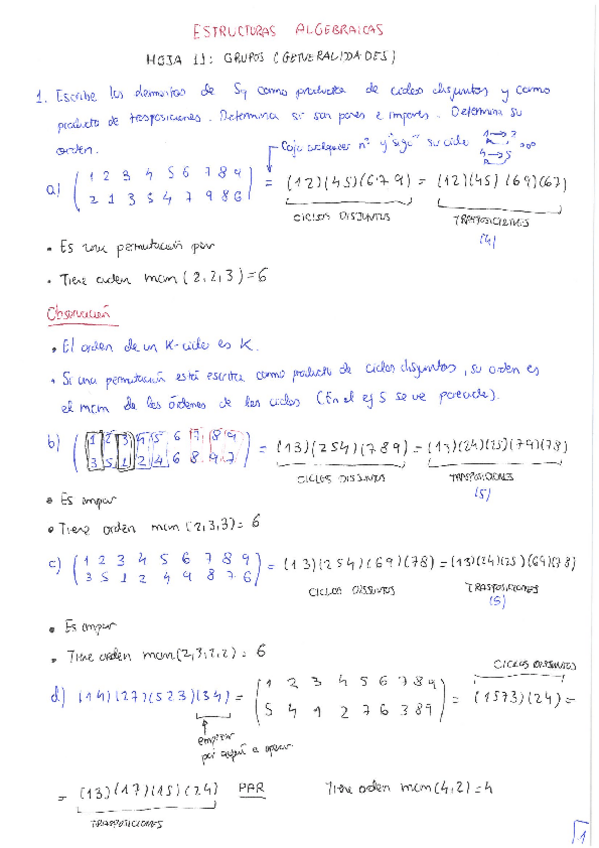 ESTRUCTURAS ALGEBRAICAS
HOJA 11: GRUPOS (GENERALIDADES)
1. Escribe los elementos de S9 como producto de ciclos disjuntos y como
producto de trasposiciones. Determina si son pares e impares. Determina su
orden.
Cojo cualquier nº y "sigo" su ciclo 1→2 4→5 ...
a) (1 2 3 4 5 6 7 8 9
2 1 3 5 4 7 9 8 6) = (12)(45)(679) = (12)(45)(69)(67)
CICLOS DISJUNTOS TRASPOSICIONES
(4)
• Es una permutación par
• Tiene orden mcm (2,2,3)=6
Observación
• El orden de un K-ciclo es K.
• Si una permutación está escrita como producto de ciclos disjuntos, su orden es
el mcm de los órdenes de los ciclos (En el ej 5 se ve porqué).
b) (1 2 3 4 5 6 7 8 9
3 5 1 2 4 6 8 9 7) = (13)(254)(789) = (13)(24)(25)(79)(78)
CICLOS DISJUNTOS TRASPOSICIONES
(5)
• Es impar
• Tiene orden mcm (2,3,3)= 6
c) (1 2 3 4 5 6 7 8 9
3 5 1 2 4 9 8 7 6) = (13)(254)(69)(78) = (13)(24)(25)(69)(78)
CICLOS DISJUNTOS TRASPOSICIONES
(5)
• Es impar
• Tiene orden mcm(2,3,2,2) = 6
CICLOS DISJUNTOS
d) (14)(27)(523)(34) = (1 2 3 4 5 6 7 8 9
5 4 1 2 7 6 3 8 9) = (1573)(24) =
empezar
por aquí a operar.
= (13)(17)(15)(24) PAR Tiene orden mcm(4,2)=4
TRASPOSICIONES
1